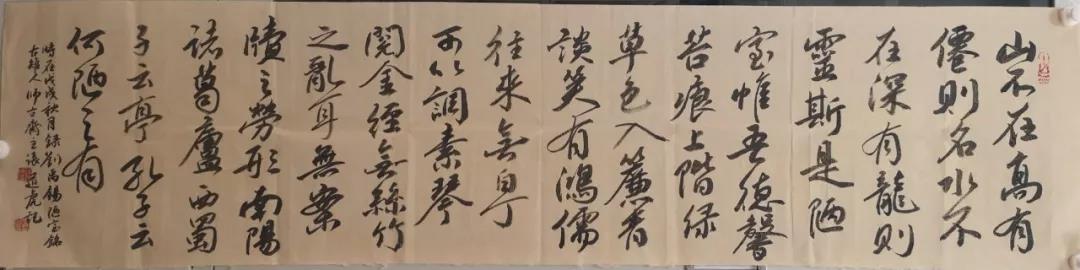 山不在高有
僊則名水不
在深有龍則
靈斯是陋
室惟吾德馨
苔痕上階緑
草色入簾青
談笑有鴻儒
往來無白丁
可以調素琴
閱金經無絲竹
之亂耳無案
牘之勞形南陽
諸葛廬西蜀
子云亭孔子云
何陋之有
時在戊戌秋月録劉禹錫陋室銘
人師古齋主張虎記